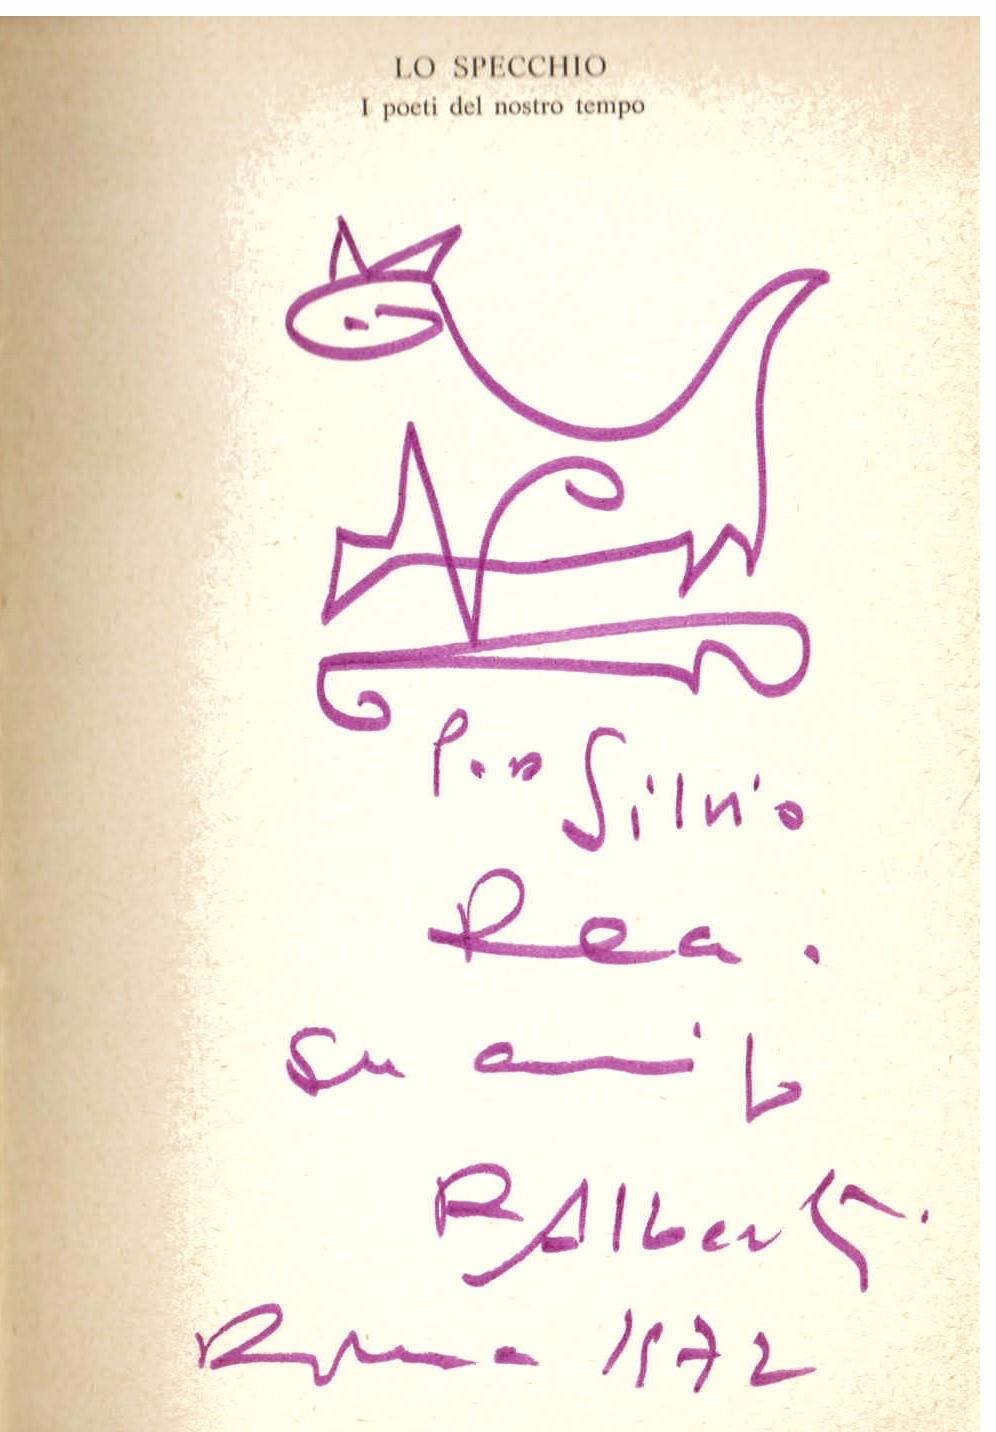 LO SPECCHIO
I poeti del nostro tempo
Silvio
Rea.
su amigo
R Alberti.
Roma 1972